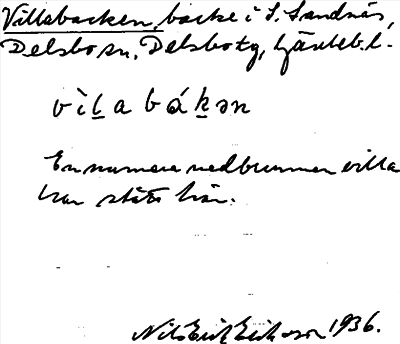 Villabacken, backe i S. Sandnäs,
Delsbo sn, Delsbo tg, Gävleb.l.
vìl̲a bák̲ən
En numera nedbrunnen villa
har stått här.
Nils Erik Erikson 1936.